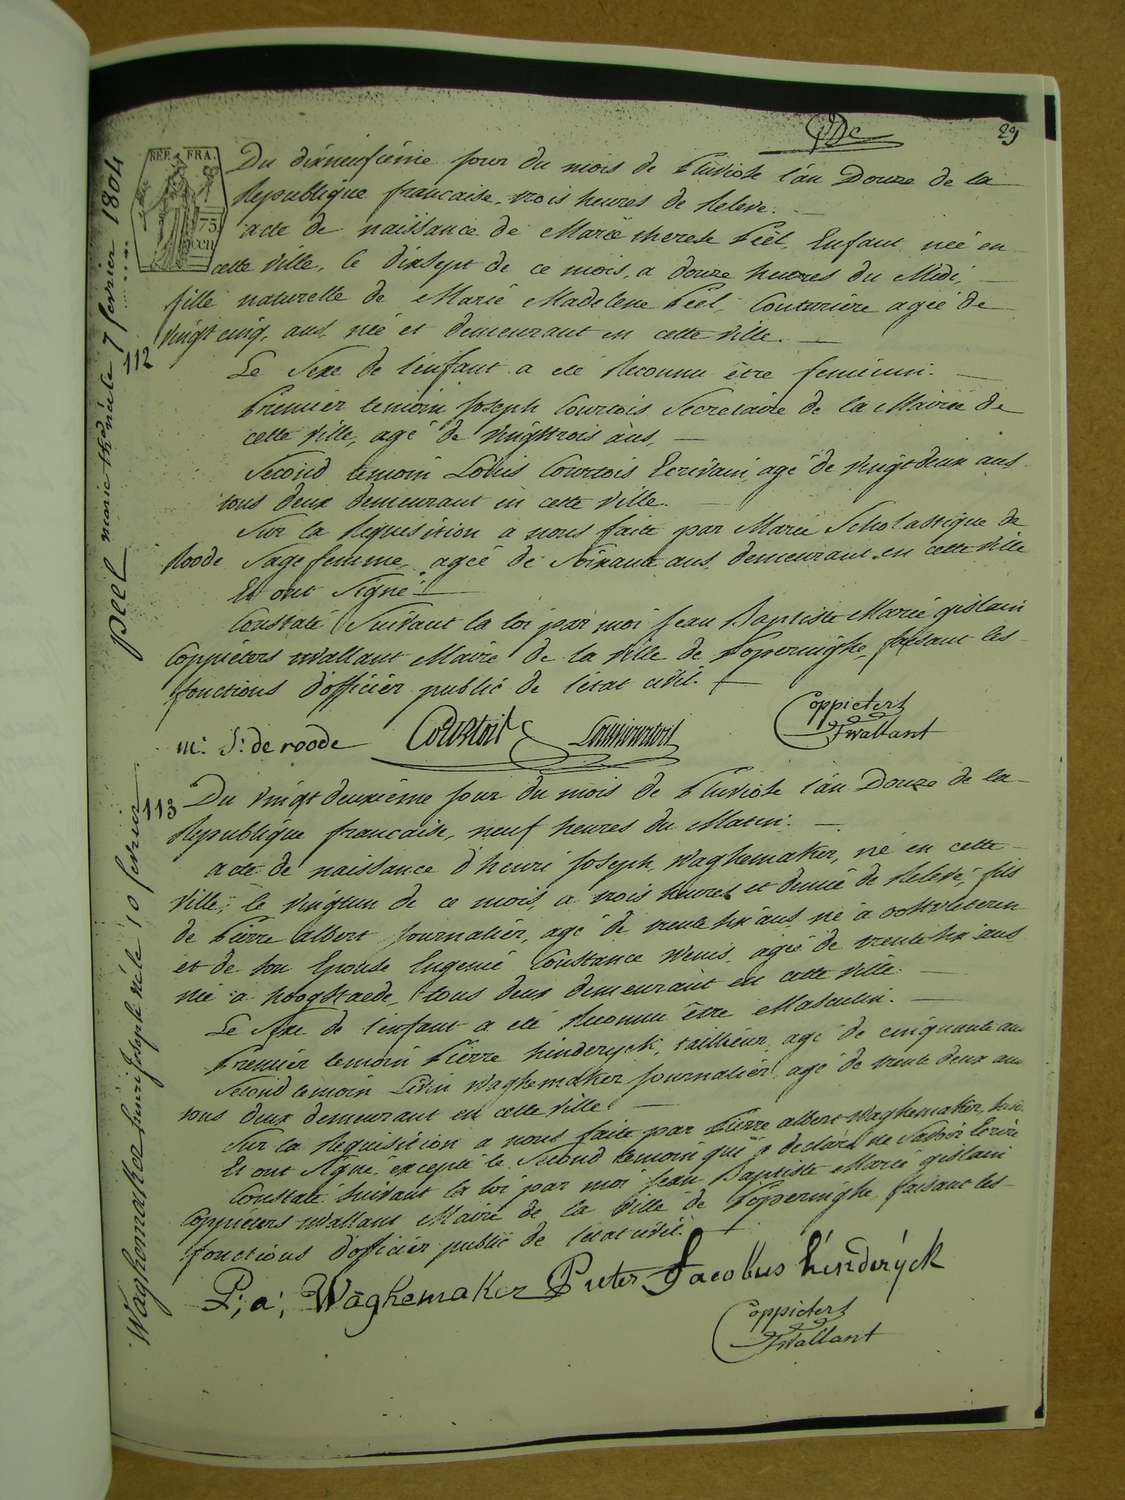 29
REP. FRA.
75
CEN
peel marie thde née le 7 fevrier 1804
112
Du dixneufième jour du mois de Pluviose l'an Douze de la
Republique francaise, trois heures de Relevé.
acte de naissance de Marie therese Peel, Enfant née en
cette ville, le dixsept de ce mois, a douze heures du Midi,
fille naturelle de Marie Madelene Peel, Couturière agée de
vingt cinq ans née et demeurant en cette ville.
Le Sexe de l'enfant a été Reconnu être feminin.
Premier temoin Joseph Courtois Secretaire de la Mairie de
cette ville, agé de vingttrois ans,
Second temoin Louis Courtois Ecrivain, agé de vingt deux ans
tous deux demeurant en cette ville.
Sur la Requisition a nous faite par Marie Scholastique de
Roode Sage femme, agée de Soixante ans, demeurant en cette ville
Et ont Signé
Constaté Suivant la loi par moi Jean Baptiste Marie gislain
Coppieters Wallant Maire de la ville de Poperinghe, faisant les
fonctions d'officier public de l'état civil.
m: S: de roode Courtois
Coppieters
Wallant
Waghemaker henri Joseph né le 10 fevrier
113
Du vingt deuxième jour du mois de Pluviose l'an Douze de la
Republique francaise, neuf heures du Matin.
acte de naissance d'henri Joseph Waghemaker, né en cette
ville, le vingtun de ce mois, a trois heures et demie de Relevé, fils
de Pierre albert Journalier, agé de trente six ans né à oostvleteren
et de Son Epouse Eugenie Constance Venis, agée de trente six ans
née a hoogstaede, tous deux demeurant en cette ville.
Le Sexe de l'enfant a été Reconnu être Masculin.
Premier temoin Pierre hinderyck, taillieur, agé de cinquante ans
Second temoin Livin Waghemaker Journalier agé de trente deux ans
tous deux demeurant en cette ville.
Sur la Requisition a nous faite par Pierre albert Waghemaker,
Et ont Signé excepté le Second temoin qui a declaré ne Savoir Ecrire
Constaté Suivant la loi par moi Jean Baptiste Marie gislain
Coppieters Wallant Maire de la ville de Poperinghe faisant les
fonctions d'officier public de l'état civil.
P: a: Waghemaker Pieter Jacobus hinderÿck
Coppieters
Wallant